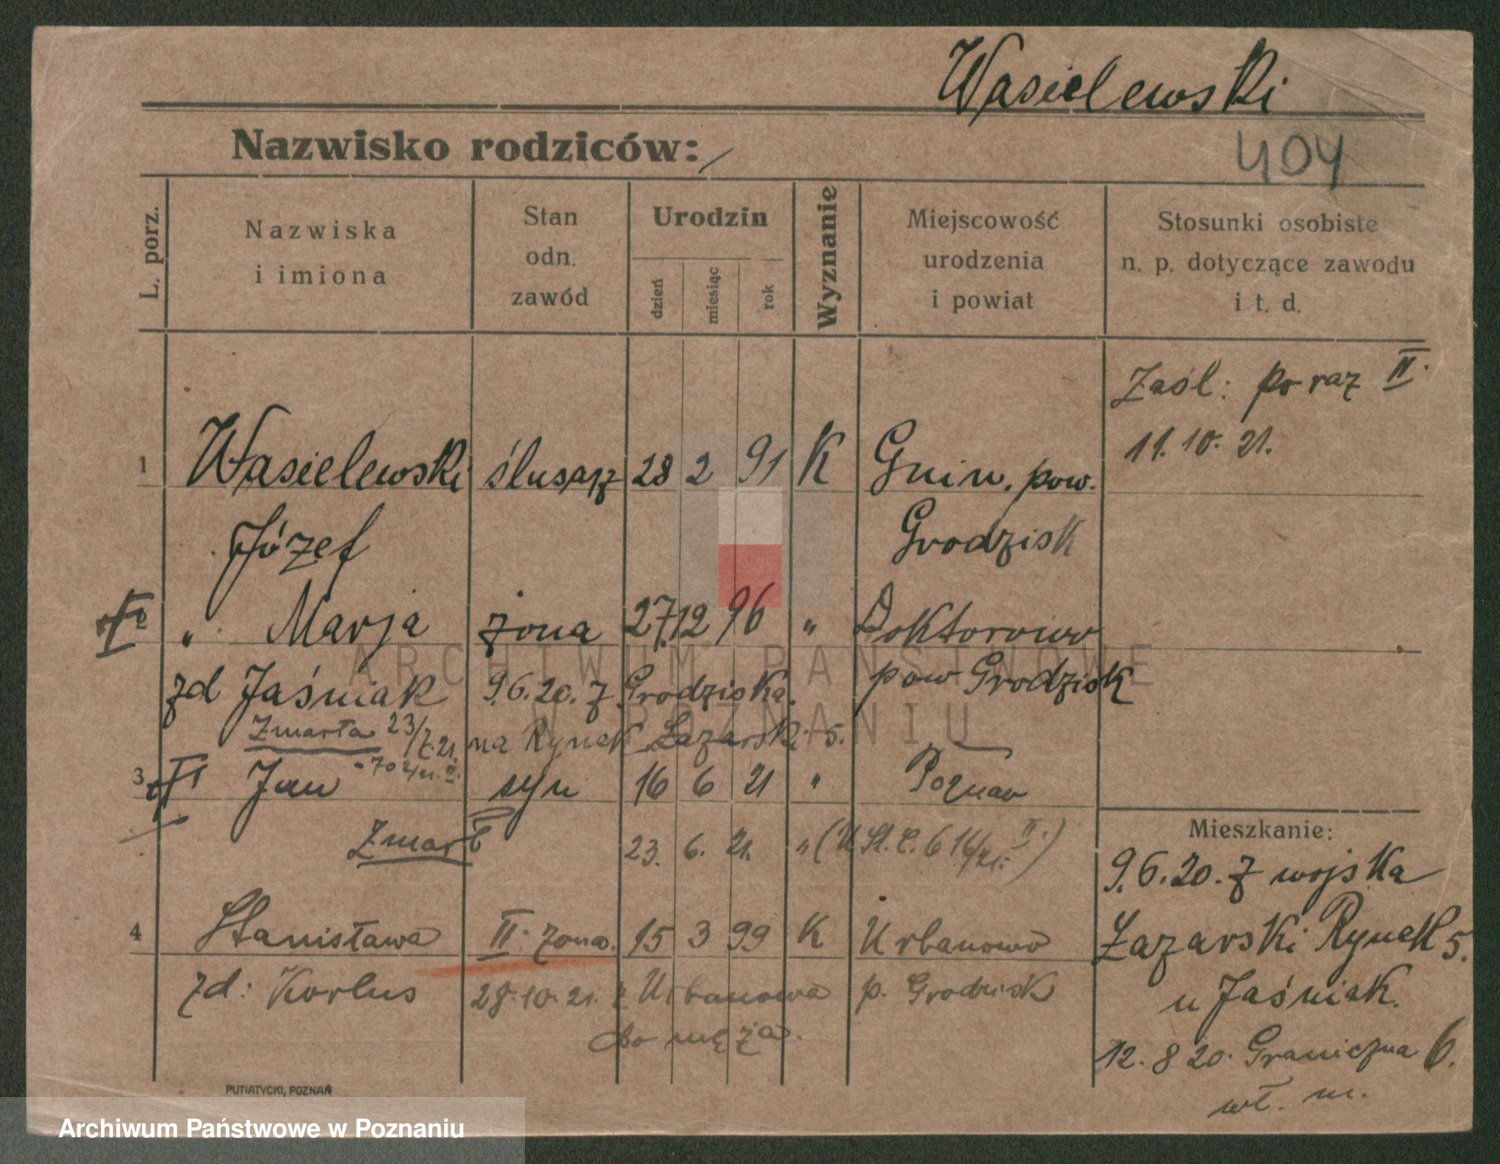 Wasielewski
Nazwisko rodziców: /
404
L. porz.
Nazwiska
i imiona
Stan
odn.
zawód
Urodzin
dzień
miesiąc
rok
Wyznanie
Miejscowość
urodzenia
i powiat
Stosunki osobiste
n. p. dotyczące zawodu
i t. d.
Zaśl: po raz II.
11. 10. 21.
1 Wasielewski ślusarz 28 2 91 K Gnin, pow.
Józef Grodzisk
2 " Marja żona 27. 12 96 " Doktorowo
zd Jaśniak 9.6.20. z Grodziska. pow Grodzisk
Zmarła 23/7.21. na Rynek Łazarski 5.
702/21. II.
3 Jan syn 16 6 21 " Poznań
Zmarł 23. 6. 21. " (U St. C. 616/21. II.)
4 Stanisława II. żona. 15 3 99 K Urbanowo
zd: Korlus 28.10.21. z Urbanowa p. Grodzisk
do męża.
Mieszkanie:
9.6.20. z wojska
Łazarski Rynek 5.
u Jaśniak.
12. 8 20. Graniczna 6.
wł. m.
PUTIATYCKI, POZNAŃ
ARCHIWUM PAŃSTWOWE
W POZNANIU
Archiwum Państwowe w Poznaniu